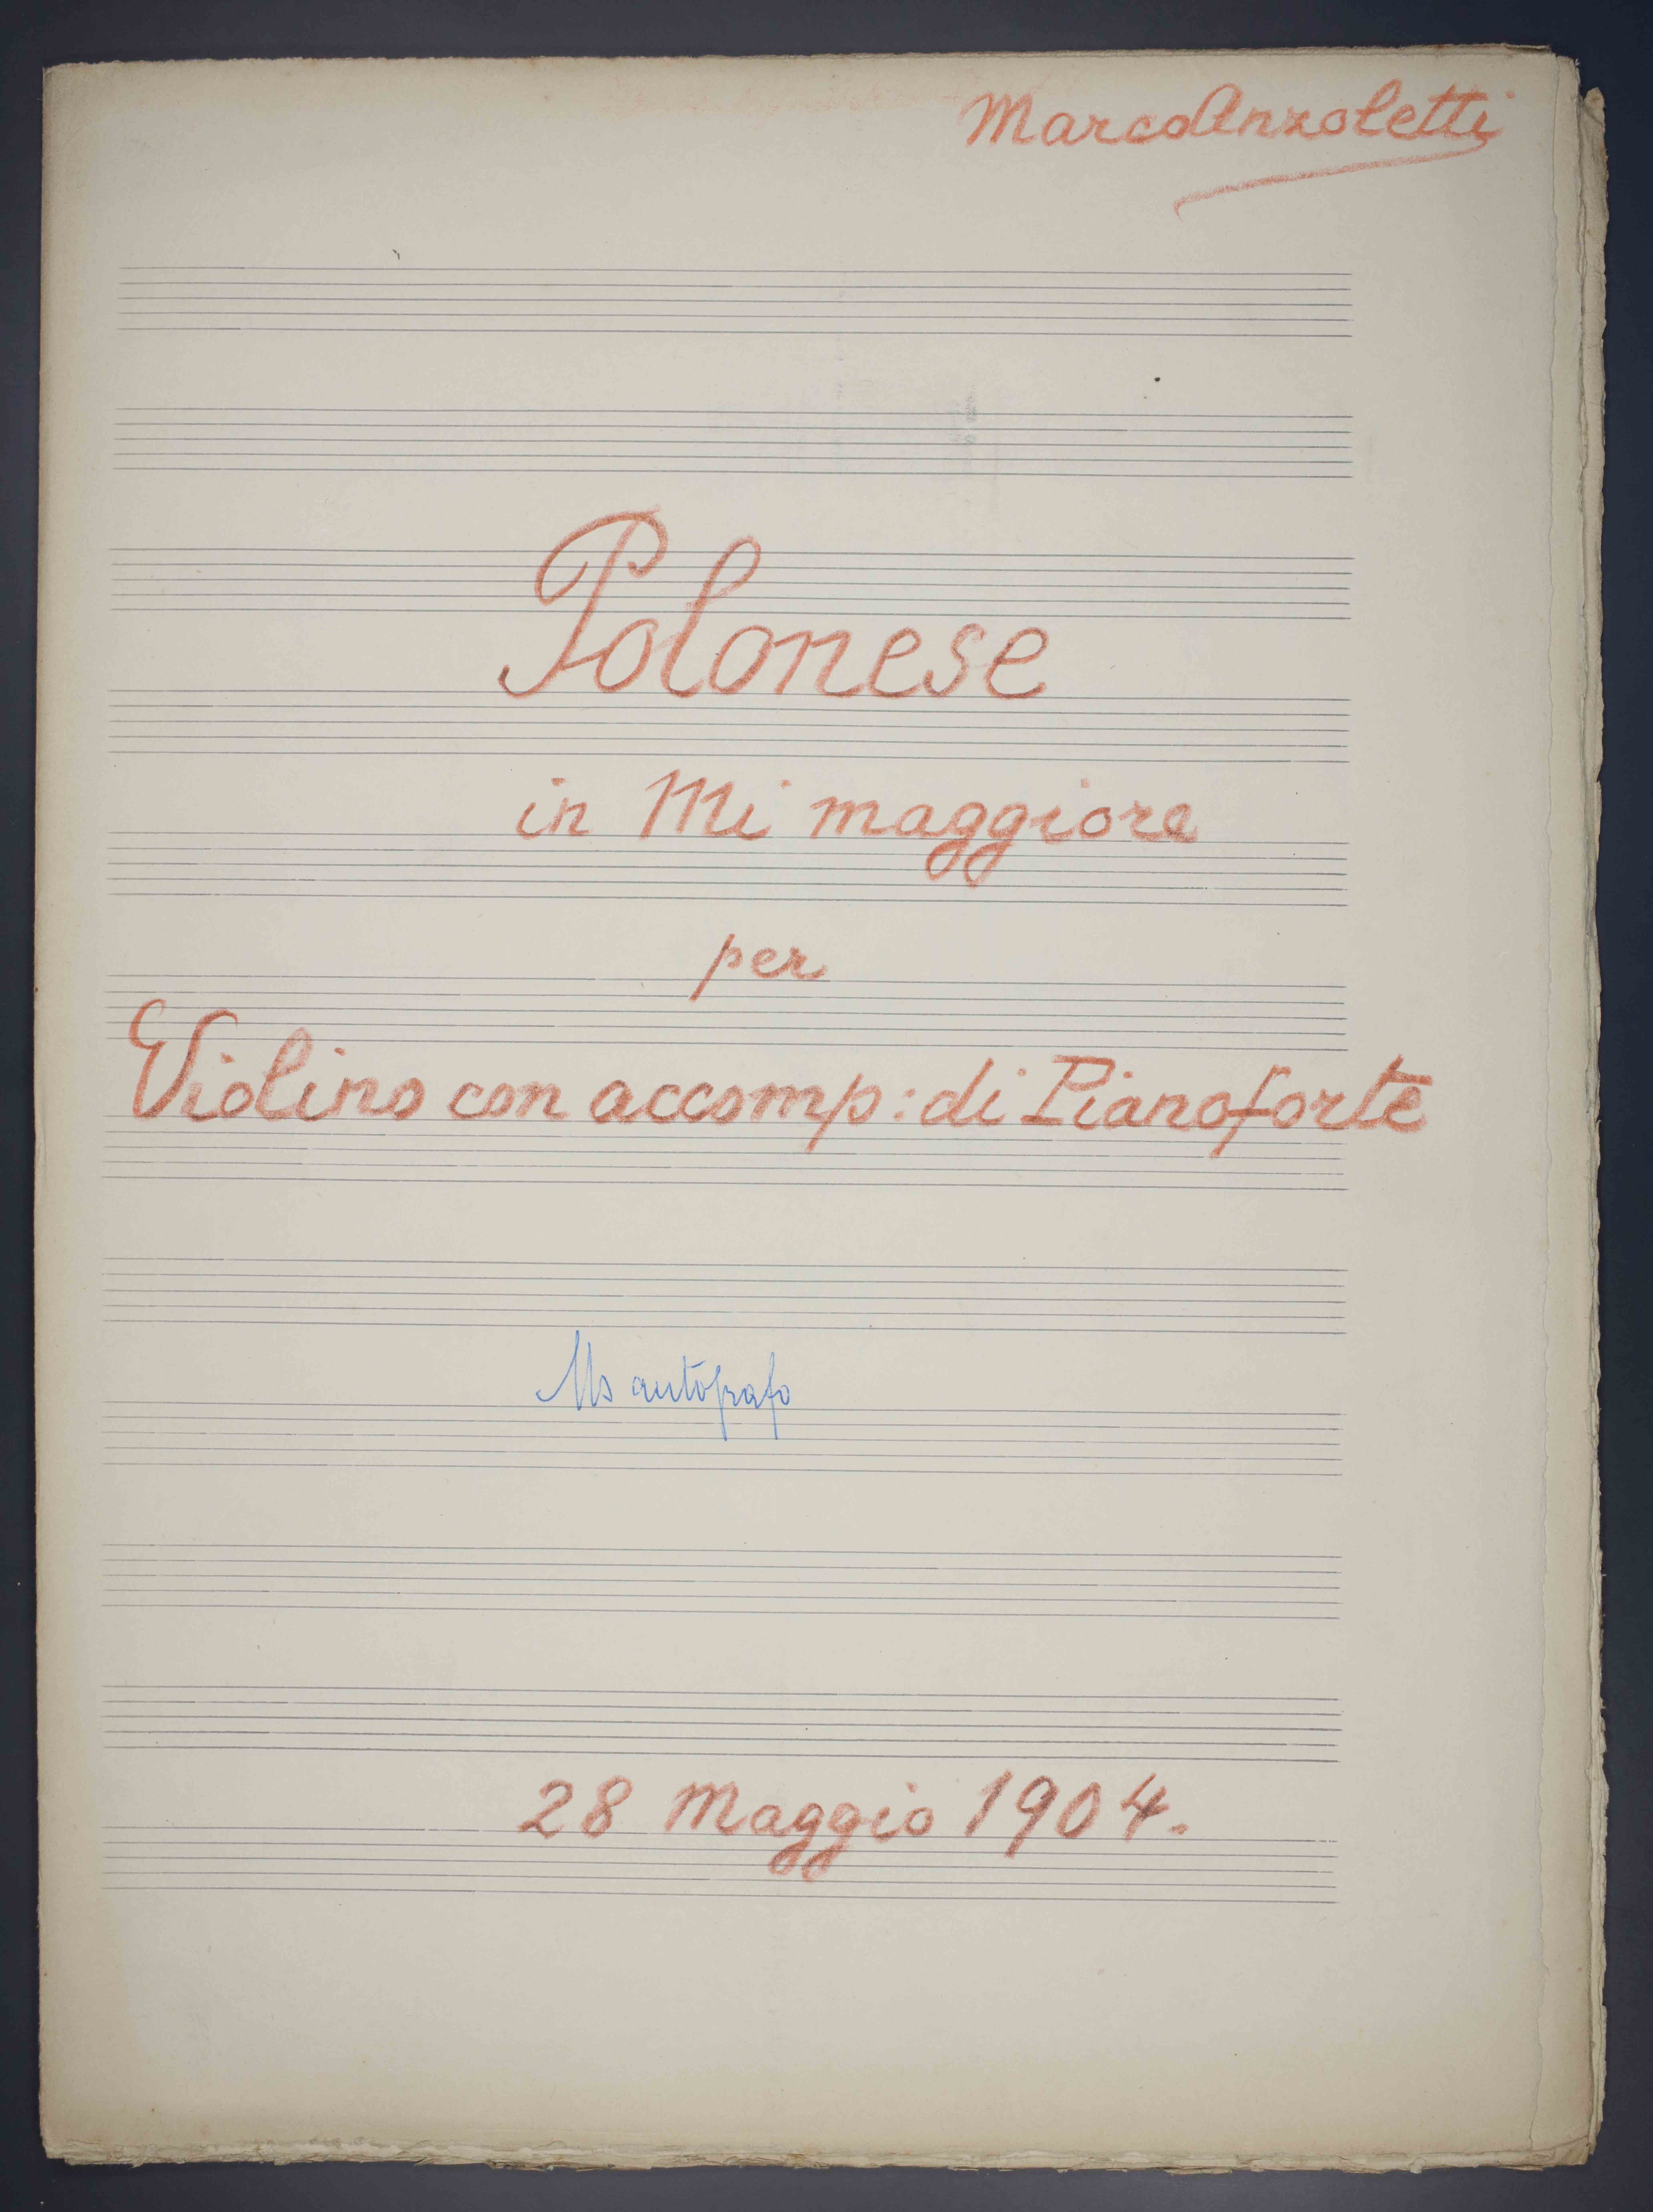 Marco Anzoletti
Polonese
in Mi maggiore
per
Violino con accomp: di Pianoforte
Ms autografo
28 Maggio 1904.